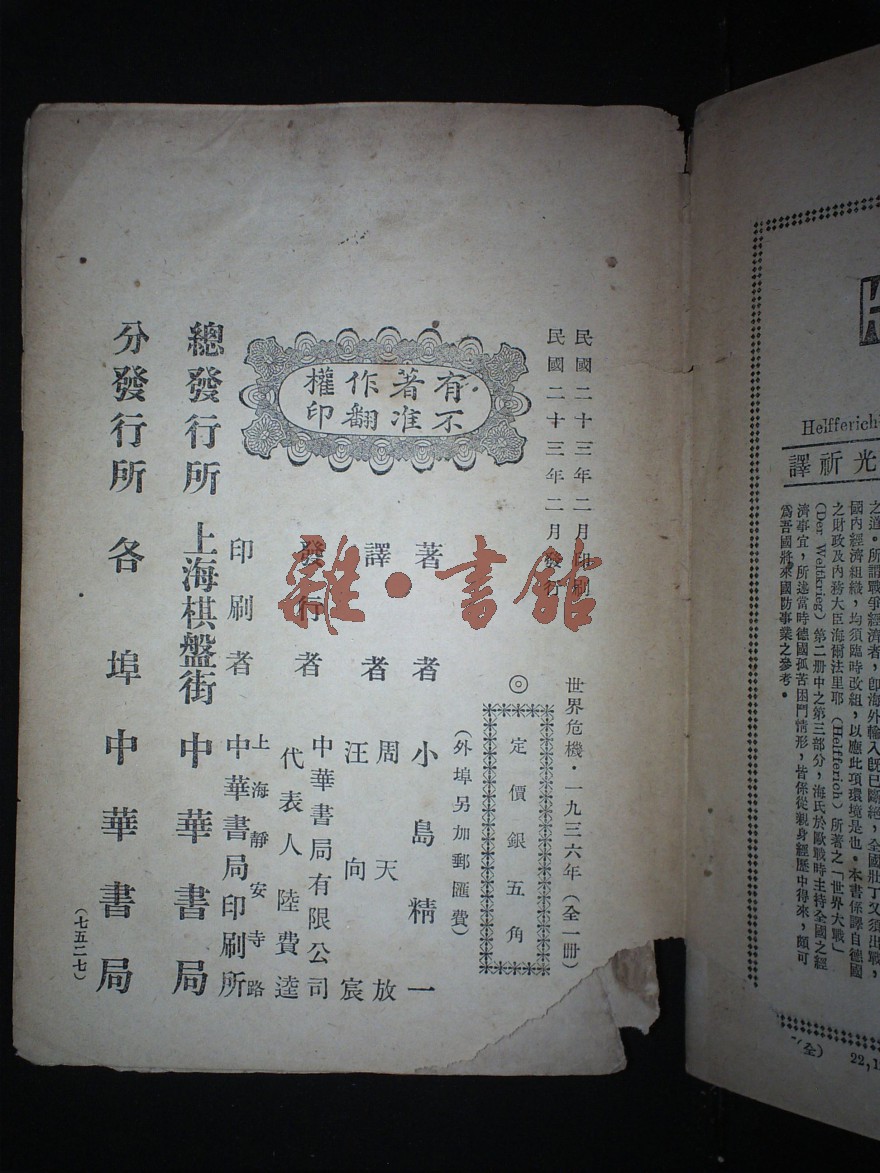 民國二十三年二月印刷
民國二十三年二月發行
有著作權
不准翻印
世界危機·一九三六年(全一册)
◎定價銀五角
(外埠另加郵匯費)
著者 小島精一
譯者 周天放
汪向宸
發行者 中華書局有限公司
代表人陸費逵
印刷者 上海靜安寺路
中華書局印刷所
總發行所 上海棋盤街 中華書局
分發行所 各埠中華書局
(七五二七)
雜·書館
Helfferich
光祈譯
之道。所謂戰爭經濟者,卽海外輸入旣已斷絕,全國壯丁又須出戰,
國內經濟組織,均須臨時改組,以應此項環境是也。本書係譯自德國
之財政及內務大臣海爾法里耶(Helfferich)所著之「世界大戰」
(Der Weltkrieg)第二册中之第三部分,海氏於歐戰時主持全國之經
濟事宜,所述當時德國孤苦困鬥情形,皆係從親身經歷中得來,頗可
爲吾國將來國防事業之參考。
(全)
22,1